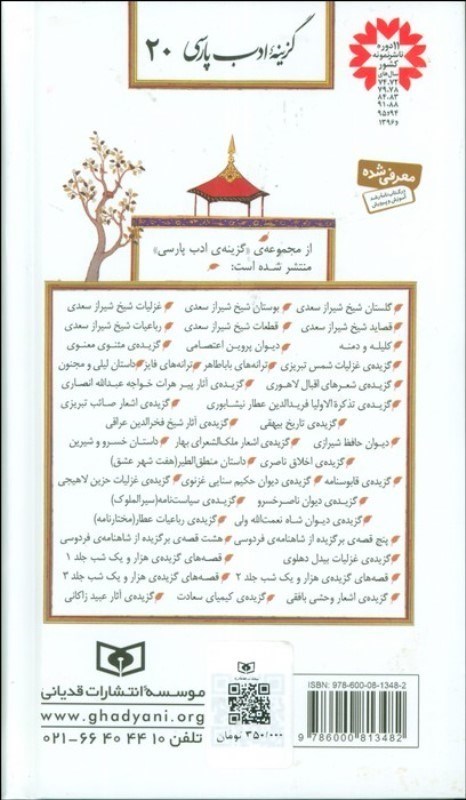 گزینهٔ ادب پارسی ۲۰
۱۱ دوره
ناشر نمونه
کشور
سال‌های
۷۴،۷۲
۷۹،۷۸
۸۴،۸۳
۹۱،۸۸
۹۴و۹۵
و ۱۳۹۶
معرفی شده
از مجموعه‌ی «گزینه‌ی ادب پارسی»
منتشر شده است:
گلستان شیخ شیراز سعدی بوستان شیخ شیراز سعدی غزلیات شیخ شیراز سعدی
قصاید شیخ شیراز سعدی قطعات شیخ شیراز سعدی رباعیات شیخ شیراز سعدی
کلیله و دمنه دیوان پروین اعتصامی گزیده‌ی مثنوی معنوی
گزیده‌ی غزلیات شمس تبریزی ترانه‌های باباطاهر ترانه‌های فایز داستان لیلی و مجنون
گزیده‌ی شعرهای اقبال لاهوری گزیده‌ی آثار پیر هرات خواجه عبدالله انصاری
گزیده‌ی تذکرة الاولیا فریدالدین عطار نیشابوری گزیده‌ی اشعار صائب تبریزی
گزیده‌ی تاریخ بیهقی گزیده‌ی آثار شیخ فخرالدین عراقی
دیوان حافظ شیرازی گزیده‌ی اشعار ملک‌الشعرای بهار داستان خسرو و شیرین
گزیده‌ی اخلاق ناصری داستان منطق‌الطیر(هفت شهر عشق)
گزیده‌ی قابوسنامه گزیده‌ی دیوان حکیم سنایی غزنوی گزیده‌ی غزلیات حزین لاهیجی
گزیده‌ی دیوان ناصرخسرو گزیده‌ی سیاست‌نامه(سیرالملوک)
گزیده‌ی دیوان شاه نعمت‌الله ولی گزیده‌ی رباعیات عطار(مختارنامه)
پنج قصه‌ی برگزیده از شاهنامه‌ی فردوسی هشت قصه‌ی برگزیده از شاهنامه‌ی فردوسی
گزیده‌ی غزلیات بیدل دهلوی قصه‌های گزیده‌ی هزار و یک شب جلد ۱
قصه‌های گزیده‌ی هزار و یک شب جلد ۲ قصه‌های گزیده‌ی هزار و یک شب جلد ۳
گزیده‌ی اشعار وحشی بافقی گزیده‌ی کیمیای سعادت گزیده‌ی آثار عبید زاکانی
مؤسسهٔ انتشارات قدیانی
www.ghadyani.org
تلفن ۱۰ ۴۴ ۴۰ ۶۶-۰۲۱
۳۵۰/۰۰۰ تومان
ISBN: 978-600-08-1348-2
9 786000 813482